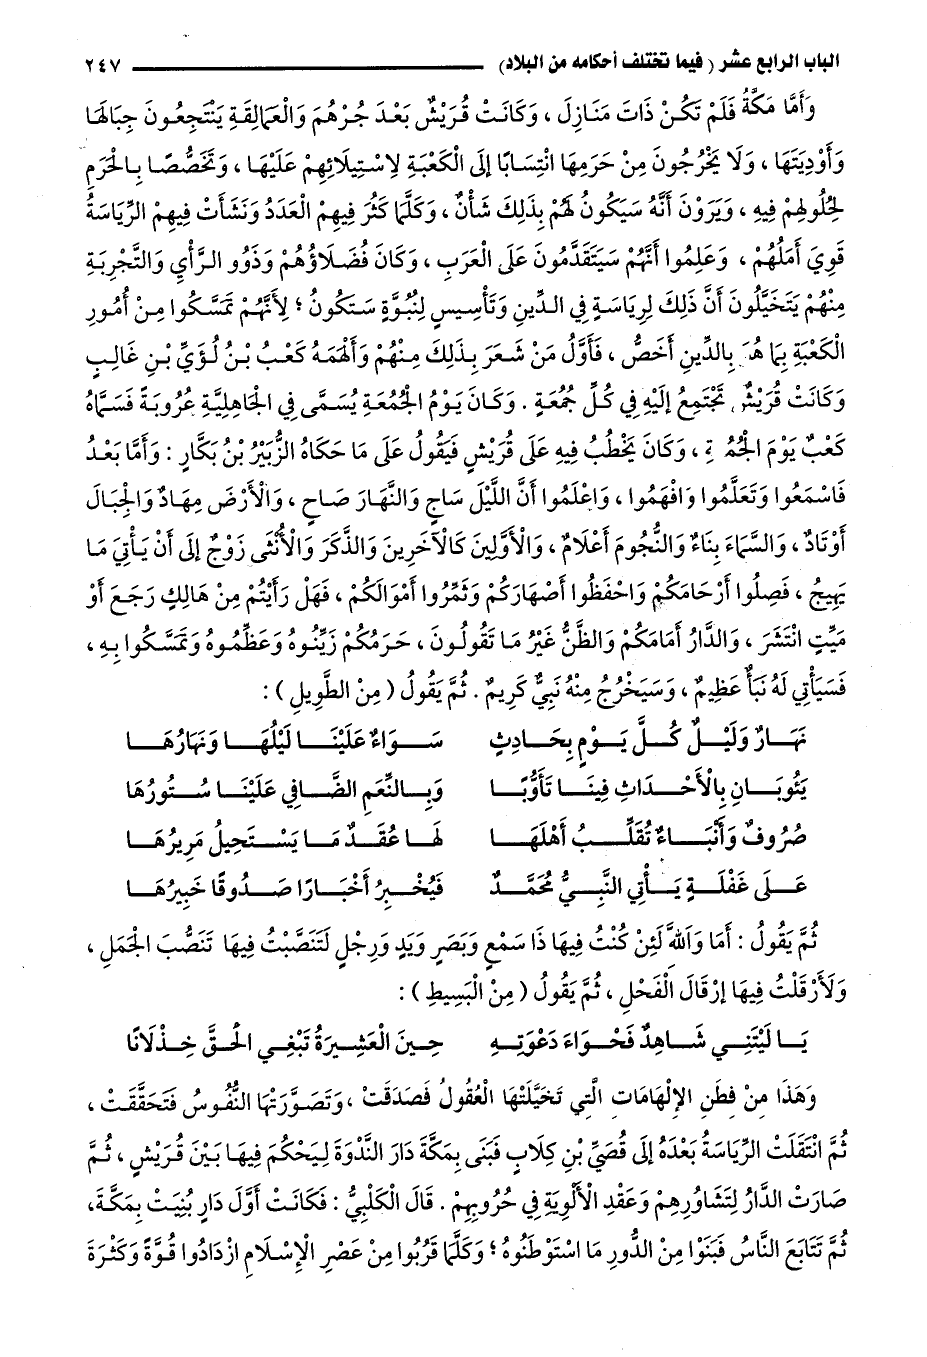 الباب الرابع عشر ( فيما تختلف أحكامه من البلاد ) ٢٤٧
وَأَمَّا مَكَّةُ فَلَمْ تَكُنْ ذَاتَ مَنَازِلَ ، وَكَانَتْ قُرَيْشٌ بَعْدَ جُرْهُمَ وَالْعَمَالِقَةِ يَنْتَجِعُونَ جِبَالَهَا
وَأَوْدِيَتَهَا ، وَلَا يَخْرُجُونَ مِنْ حَرَمِهَا انْتِسَابًا إلَى الْكَعْبَةِ لِاسْتِيلَائِهِمْ عَلَيْهَا ، وَتَخَصُّصًا بِالْحَرَمِ
لِحُلُولِهِمْ فِيهِ ، وَيَرَوْنَ أَنَّهُ سَيَكُونُ لَهُمْ بِذَلِكَ شَأْنٌ ، وَكُلَّمَا كَثُرَ فِيهِمْ الْعَدَدُ وَنَشَأَتْ فِيهِمْ الرِّيَاسَةُ
قَوِيَ أَمَلُهُمْ ، وَعَلِمُوا أَنَّهُمْ سَيَتَقَدَّمُونَ عَلَى الْعَرَبِ ، وَكَانَ فُضَلَاؤُهُمْ وَذَوُو الرَّأْيِ وَالتَّجْرِبَةِ
مِنْهُمْ يَتَخَيَّلُونَ أَنَّ ذَلِكَ لِرِيَاسَةٍ فِي الدِّينِ وَتَأْسِيسٍ لِنُبُوَّةٍ سَتَكُونُ ؛ لِأَنَّهُمْ تَمَسَّكُوا مِنْ أُمُورِ
الْكَعْبَةِ بِمَا هُوَ بِالدِّينِ أَخَصُّ ، فَأَوَّلُ مَنْ شَعَرَ بِذَلِكَ مِنْهُمْ وَأُلْهِمَهُ كَعْبُ بْنُ لُؤَيِّ بْنِ غَالِبٍ
وَكَانَتْ قُرَيْشٌ تَجْتَمِعُ إلَيْهِ فِي كُلِّ جُمُعَةٍ . وَكَانَ يَوْمُ الْجُمُعَةِ يُسَمَّى فِي الْجَاهِلِيَّةِ عَرُوبَةَ فَسَمَّاهُ
كَعْبٌ يَوْمَ الْجُمُعَةِ ، وَكَانَ يَخْطُبُ فِيهِ عَلَى قُرَيْشٍ فَيَقُولُ عَلَى مَا حَكَاهُ الزُّبَيْرُ بْنُ بَكَّارٍ : وَأَمَّا بَعْدُ
فَاسْمَعُوا وَتَعَلَّمُوا وَافْهَمُوا ، وَاعْلَمُوا أَنَّ اللَّيْلَ سَاجٍ وَالنَّهَارَ صَاحٍ ، وَالْأَرْضَ مِهَادٌ وَالْجِبَالَ
أَوْتَادٌ ، وَالسَّمَاءَ بِنَاءٌ وَالنُّجُومَ أَعْلَامٌ ، وَالْأَوَّلِينَ كَالْآخَرِينَ وَالذَّكَرَ وَالْأُنْثَى زَوْجٌ إلَى أَنْ يَأْتِيَ مَا
يَهِيجُ ، فَصِلُوا أَرْحَامَكُمْ وَاحْفَظُوا أَصْهَارَكُمْ وَثَمِّرُوا أَمْوَالَكُمْ ، فَهَلْ رَأَيْتُمْ مِنْ هَالِكٍ رَجَعَ أَوْ
مَيِّتٍ انْتَشَرَ ، وَالدَّارُ أَمَامَكُمْ وَالظَّنُّ غَيْرُ مَا تَقُولُونَ ، حَرَمُكُمْ زَيِّنُوهُ وَعَظِّمُوهُ وَتَمَسَّكُوا بِهِ ،
فَسَيَأْتِي لَهُ نَبَأٌ عَظِيمٌ ، وَسَيَخْرُجُ مِنْهُ نَبِيٌّ كَرِيمٌ . ثُمَّ يَقُولُ ( مِنْ الطَّوِيلِ ) :
نَهَارٌ وَلَيْلٌ كُلَّ يَوْمٍ بِحَادِثٍ سَوَاءٌ عَلَيْنَا لَيْلُهَا وَنَهَارُهَا
يَئُوبَانِ بِالْأَحْدَاثِ فِينَا تَأَوُّبًا وَبِالنَّعَمِ الضَّافِي عَلَيْنَا سُتُورُهَا
صُرُوفٌ وَأَنْبَاءٌ تُقَلِّبُ أَهْلَهَا لَهَا عُقَدٌ مَا يَسْتَحِيلُ مَرِيرُهَا
عَلَى غَفْلَةٍ يَأْتِي النَّبِيُّ مُحَمَّدٌ فَيُخْبِرُ أَخْبَارًا صَدُوقًا خَبِيرُهَا
ثُمَّ يَقُولُ : أَمَا وَاللَّهِ لَئِنْ كُنْتُ فِيهَا ذَا سَمْعٍ وَبَصَرٍ وَيَدٍ وَرِجْلٍ لَتَنَصَّبْتُ فِيهَا تَنَصُّبَ الْجَمَلِ ،
وَلَأَرْقَلْتُ فِيهَا إرْقَالَ الْفَحْلِ ، ثُمَّ يَقُولُ ( مِنْ الْبَسِيطِ ) :
يَا لَيْتَنِي شَاهِدٌ فَحْوَاءَ دَعْوَتِهِ حِينَ الْعَشِيرَةُ تَبْغِي الْحَقَّ خِذْلَانًا
وَهَذَا مِنْ فِطَنِ الْإِلْهَامَاتِ الَّتِي تَخَيَّلَتْهَا الْعُقُولُ فَصَدَقَتْ ، وَتَصَوَّرَتْهَا النُّفُوسُ فَتَحَقَّقَتْ ،
ثُمَّ انْتَقَلَتْ الرِّيَاسَةُ بَعْدَهُ إلَى قُصَيِّ بْنِ كِلَابٍ فَبَنَى بِمَكَّةَ دَارَ النَّدْوَةِ لِيَحْكُمَ فِيهَا بَيْنَ قُرَيْشٍ ، ثُمَّ
صَارَتْ الدَّارُ لِتَشَاوُرِهِمْ وَعَقْدِ الْأَلْوِيَةِ فِي حُرُوبِهِمْ . قَالَ الْكَلْبِيُّ : فَكَانَتْ أَوَّلَ دَارٍ بُنِيَتْ بِمَكَّةَ،
ثُمَّ تَتَابَعَ النَّاسُ فَبَنَوْا مِنْ الدُّورِ مَا اسْتَوْطَنُوهُ ؛ وَكُلَّمَا قَرُبُوا مِنْ عَصْرِ الْإِسْلَامِ ازْدَادُوا قُوَّةً وَكَثْرَةَ